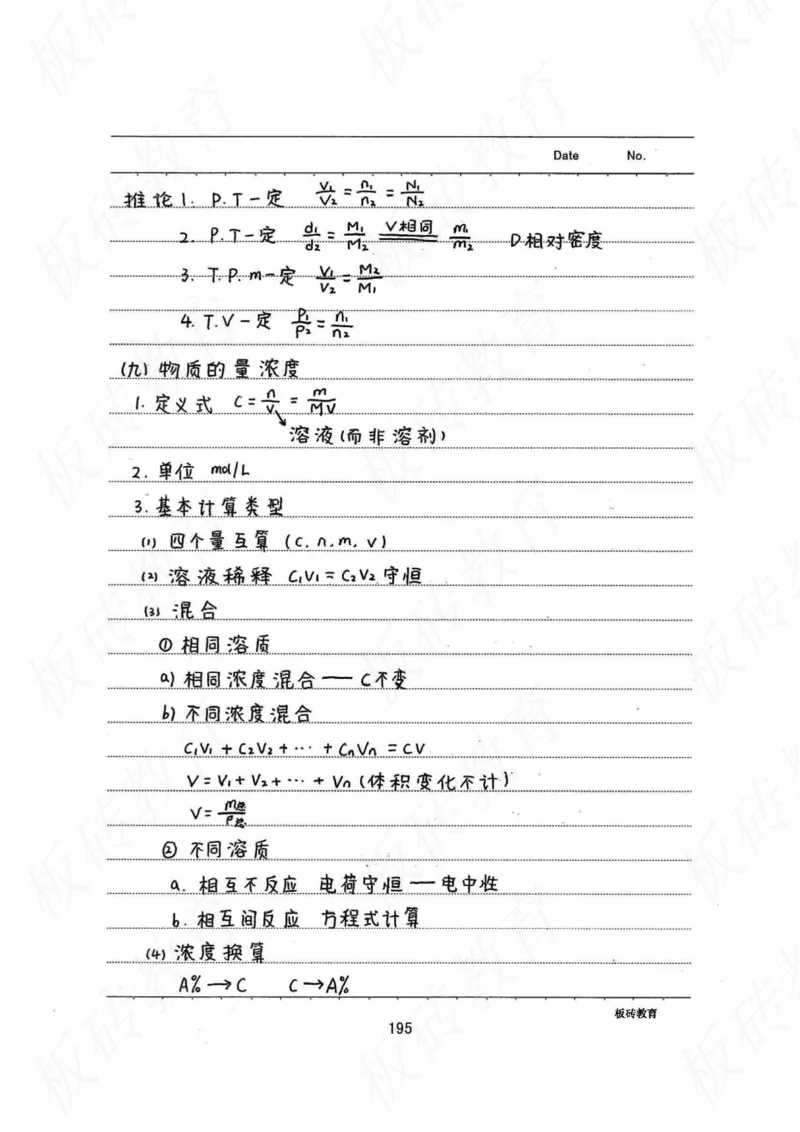 Date No.
推论1. P.T一定 V₁/V₂ = n₁/n₂ = N₁/N₂
2. P.T一定 d₁/d₂ = M₁/M₂ V相同 m₁/m₂ D相对密度
3. T.P.m一定 V₁/V₂ = M₂/M₁
4. T.V一定 P₁/P₂ = n₁/n₂
(九) 物质的量浓度
1. 定义式 C = n/V = m/MV
溶液(而非溶剂)
2. 单位 mol/L
3. 基本计算类型
(1) 四个量互算 (C. n. m. V)
(2) 溶液稀释 C₁V₁ = C₂V₂ 守恒
(3) 混合
① 相同溶质
a) 相同浓度混合 — C不变
b) 不同浓度混合
C₁V₁ + C₂V₂ + ··· + CnVn = CV
V = V₁ + V₂ + ··· + Vn (体积变化不计)
V = m总/ρ总
② 不同溶质
a. 相互不反应 电荷守恒 — 电中性
b. 相互间反应 方程式计算
(4) 浓度换算
A% → C C → A%
板砖教育
195